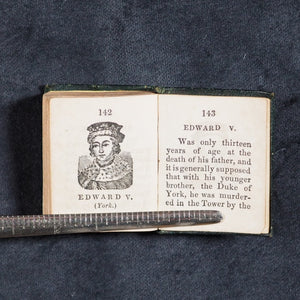 142
EDWARD V.
(York.)
143
EDWARD V.
Was only thirteen
years of age at the
death of his father, and
it is generally supposed
that with his younger
brother, the Duke of
York, he was murder-
ed in the Tower by the